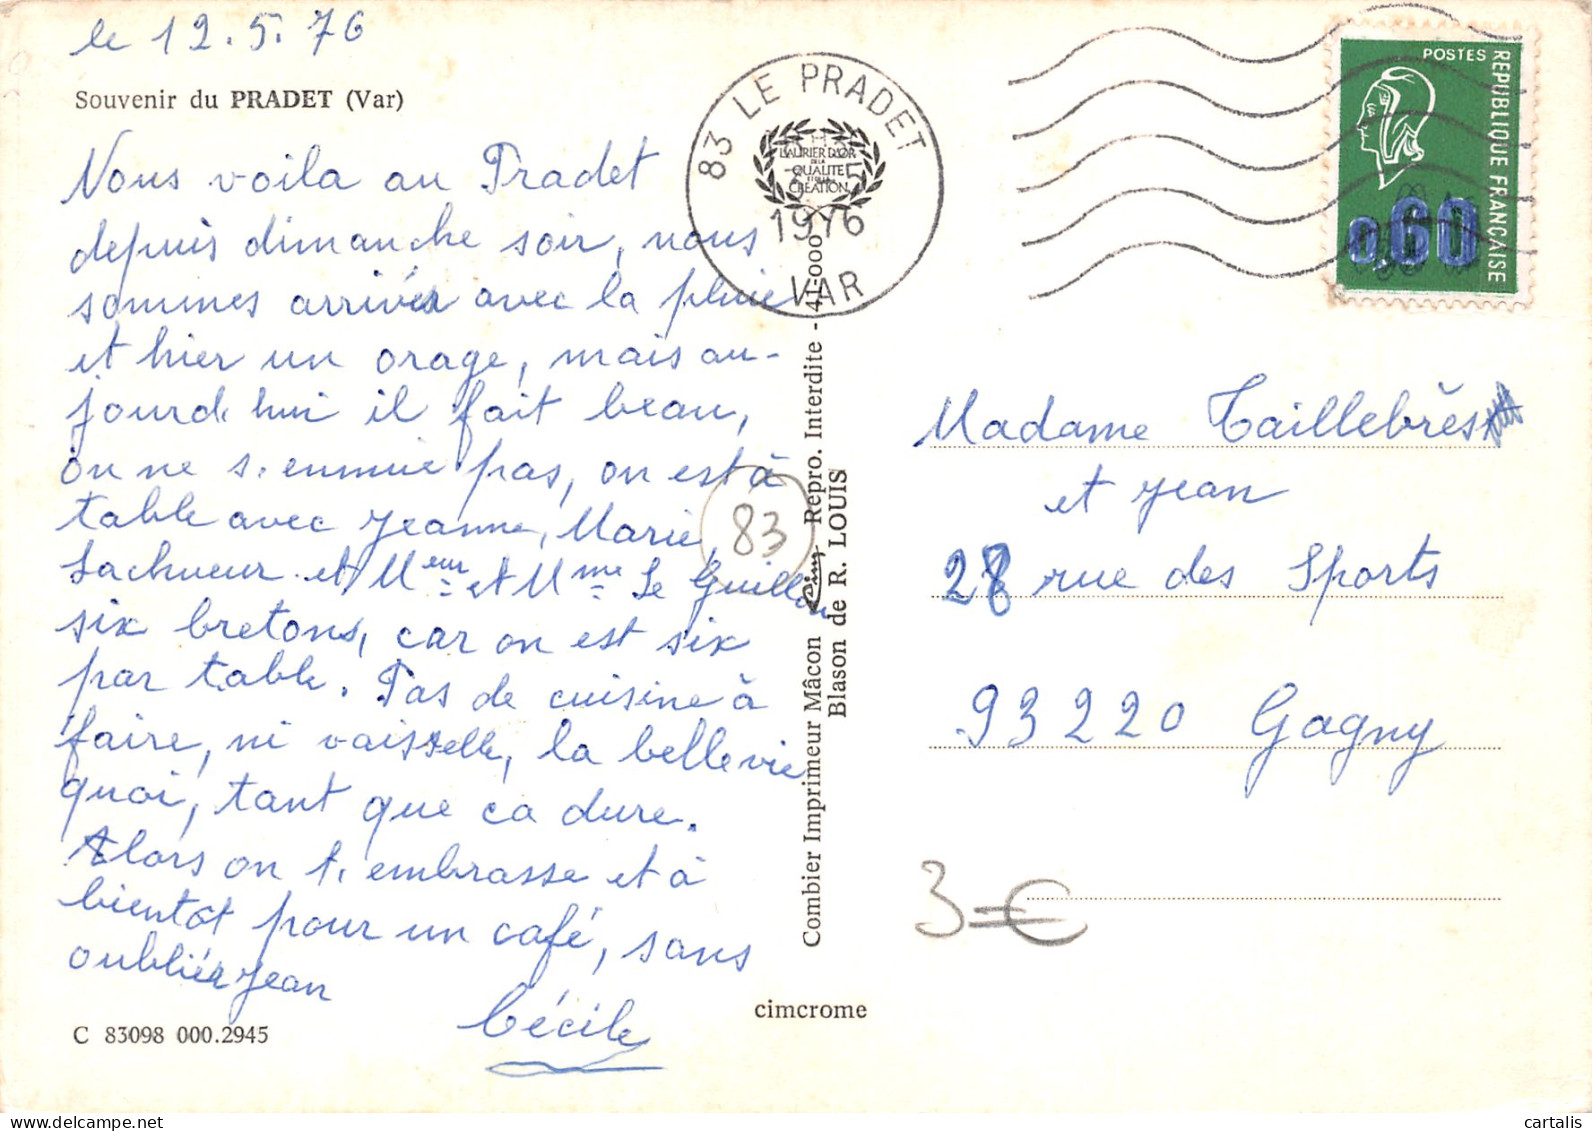 le 12.5.76
Souvenir du PRADET (Var)
Nous voila au Pradet
depuis dimanche soir, nous
sommes arrivés avec la pluie
et hier un orage, mais au-
jourd'hui il fait beau,
on ne s'ennuie pas, on est à
table avec Jeanne, Marie
Lachueur et Meur et Mme Le Guillou
six bretons, car on est six
par table. Pas de cuisine à
faire, ni vaisselle, la belle vie
quoi, tant que ca dure.
Alors on t'embrasse et à
bientôt pour un café, sans
oublier Jean
Cécile
C 83098 000.2945
83 LE PRADET
LAURIER D'OR
DE LA
QUALITE
ET DE LA
CREATION
1976
VAR
Combier Imprimeur Mâcon Cim Repro. Interdite - 41-000
Blason de R. LOUIS
cimcrome
83
POSTES
REPUBLIQUE FRANÇAISE
0,60
Madame Taillebrès
et Jean
28 rue des Sports
93220 Gagny
3=€
www.delcampe.net
cartalis